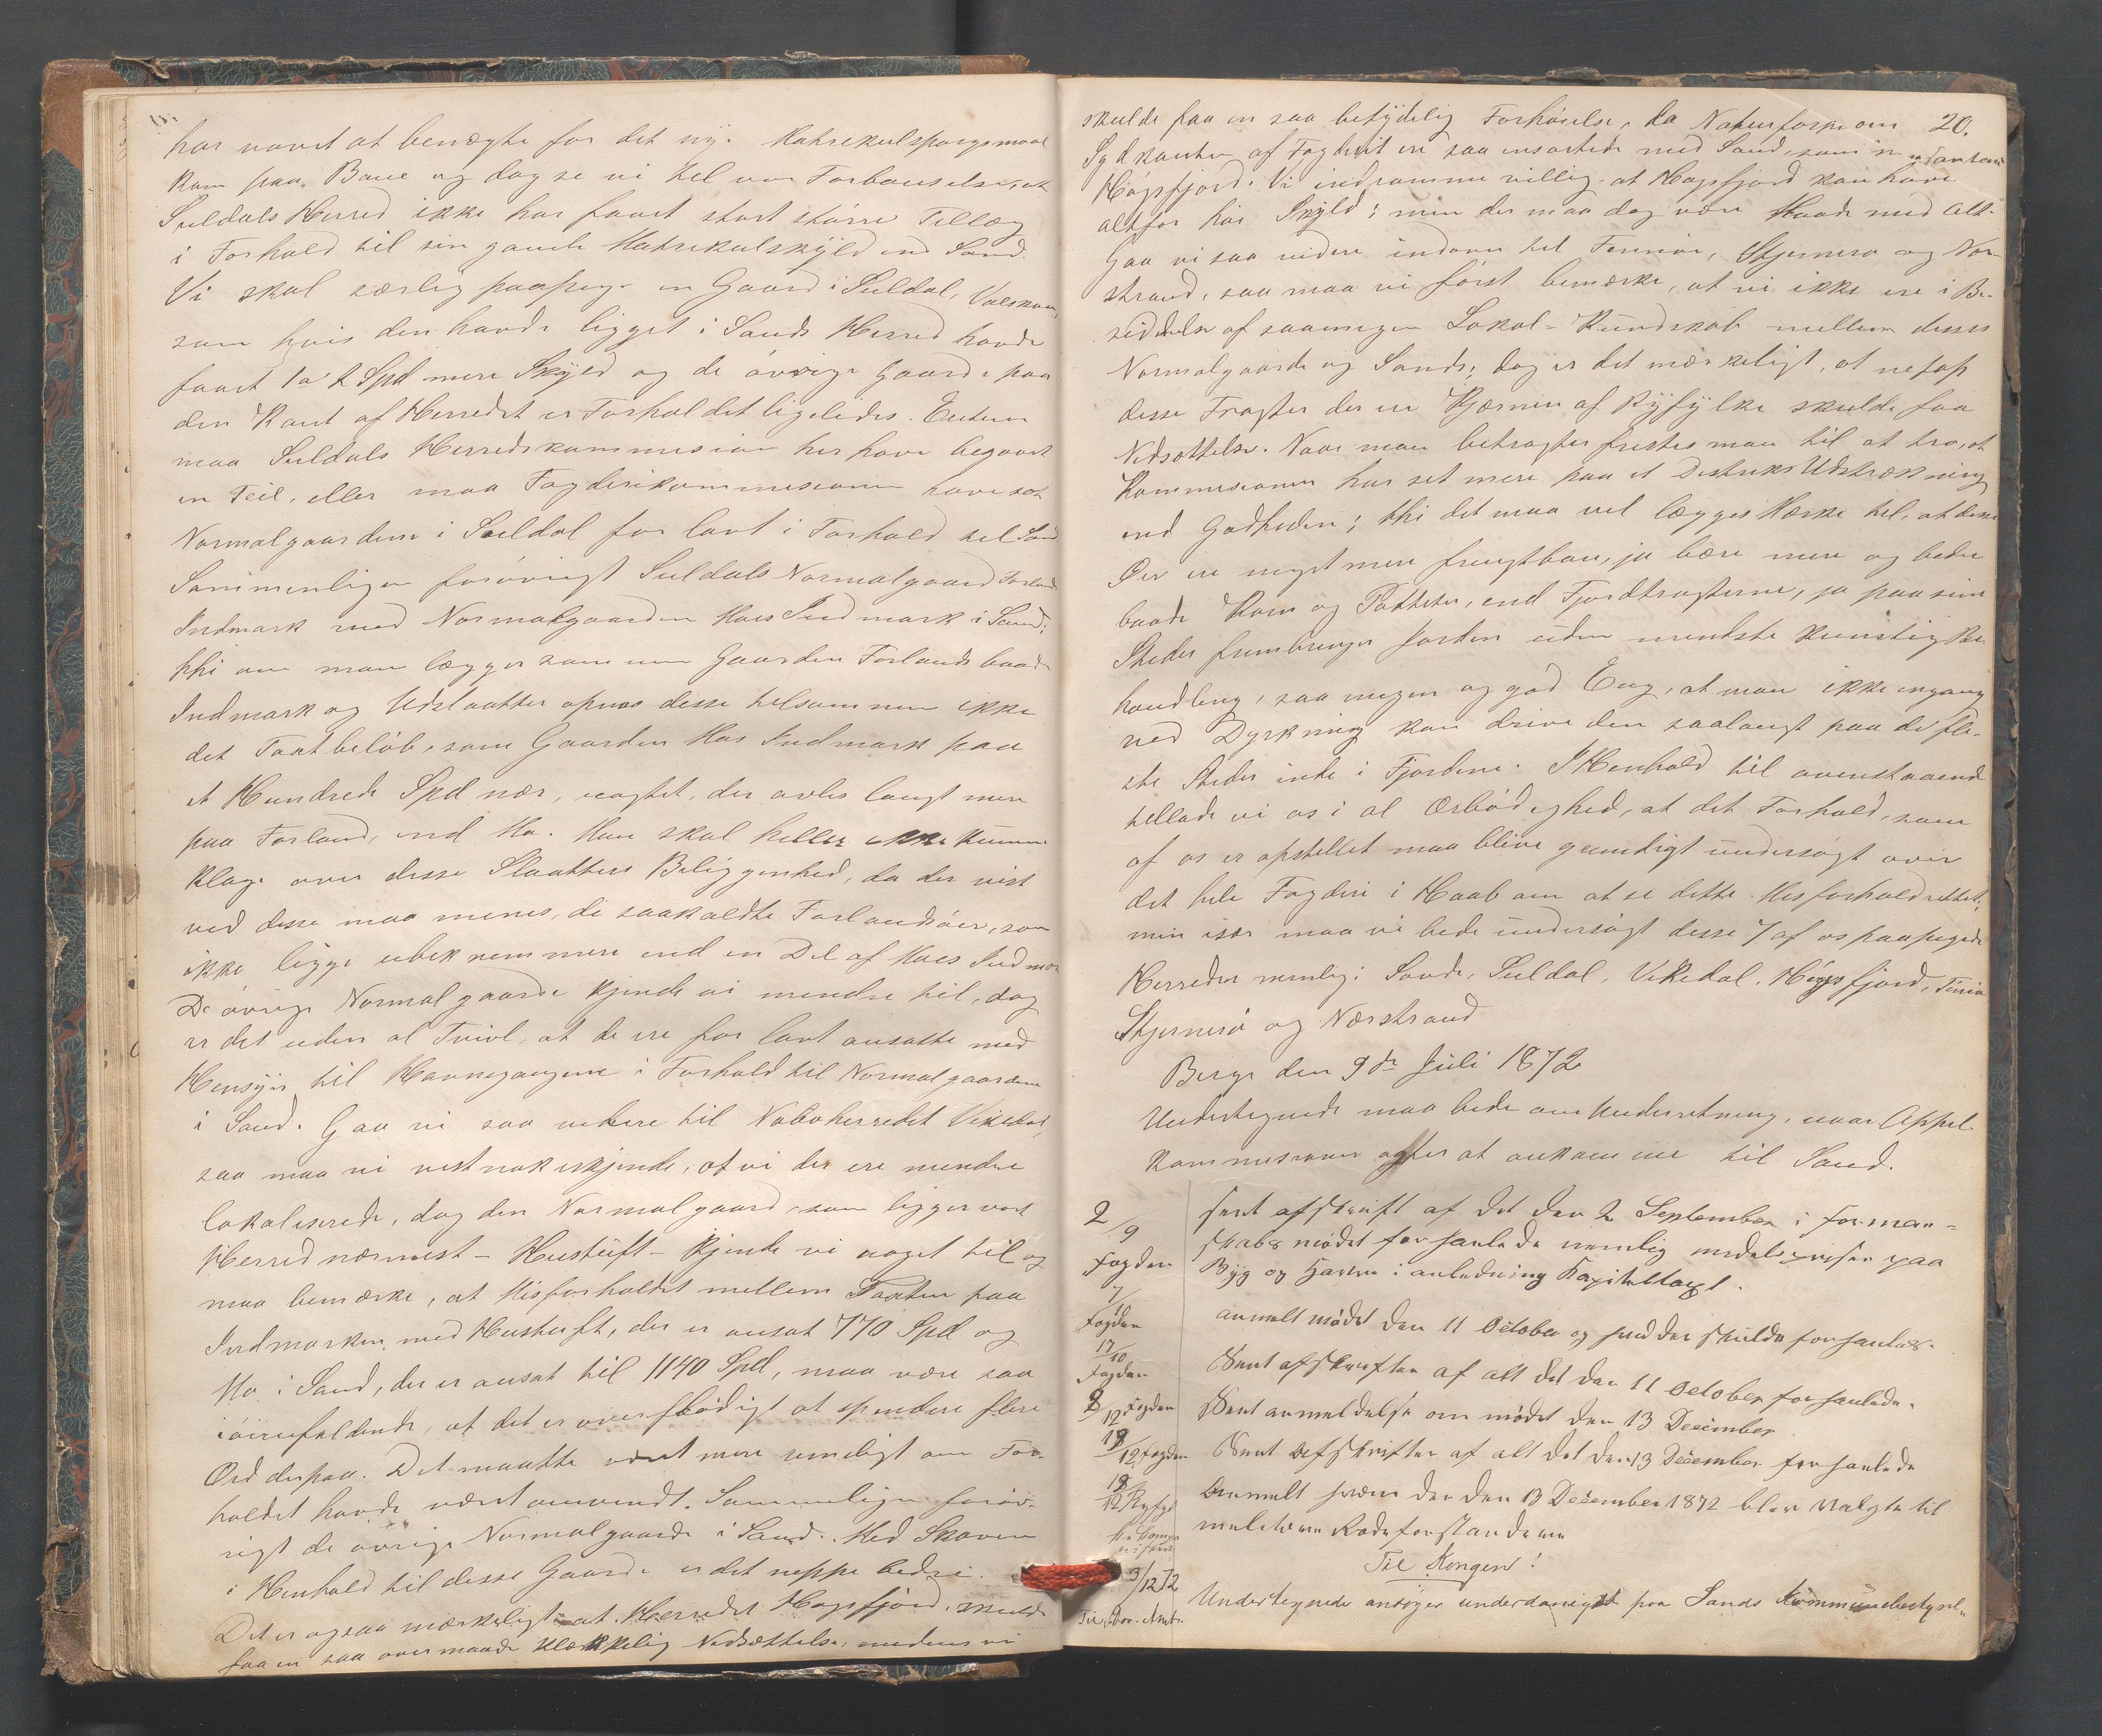 har været at benægte for det ny. Matrekulspørgsmaal
kom paa Bane og dog se vi til vor Forbauselse, at
Suldals Herred ikke har faaet stort større Tillæg
i Forhold til sin gamle Matrekulskyld end Sand.
Vi skal særlig paapege en Gaard i Suldal,
som hvis den havde ligget i Sands Herred havde
faaet 1 a 2 Spd mere Skyld og de øvrige Gaarde paa
den Kant af Herredet er Forholdet ligeledes. Enten
maa Suldals Herredskommission her have begaaet
en Feil, eller maa Fogderikommissionen have sat
Normalgaardene i Suldal for lavt i Forhold til Sand
Sammenlign forøvrigt Suldals Normalgaard Forlands
Indmark med Normalgaarden Moes Indmark i Sand;
thi om man lægger sammen Gaarden Forlands baade
Indmark og Udslaatter opnaas desse tilsammen ikke
det Taxtbeløb, som Gaarden Mos Indmark paa
et Hundrede Spd nær, uagtet, der avles langt mere
paa Forland, end Mo. Man skal heller ikke kunne
klage over desse Slaatters Beliggenhed, da der vist
ved desse maa menes, de saakaldte Forlandsøer, som
ikke ligge ubekvemmere end en Del af Moes Indmark
De øvrige Normalgaarde kjende vi mendre til, dog
er det uden al Tvivl, at de ere for lavt ansatte med
Hensyn til Havnegangene i Forhold til Normalgaardene
i Sand. Gaa vi saa videre til Naboherredet Vikedal,
saa maa vi vistnok erkjende, at vi der ere mendre
lokaliserede, dog den Normalgaard, som ligger vort
Herred nærmest - Hustuft - kjende vi noget til og
maa bemærke, at Misforholdet mellem Taxten paa
Indmarken med Hustuft, der er ansat 770 Spd og
Mo i Sand, der er ansat til 1140 Spd, maa være saa
iøinefaldende, at det er overflødigt at spendere flere
Ord derpaa. Det maatte været mere rimeligt om For-
holdet havde været omvendt. Sammenlign forøv-
rigt de øvrige Normalgaarde i Sand. Med Skoven
i Henhold til desse Gaarde er det neppe bedre.
Det er ogsaa mærkeligt at Herredet Høgsfjord, skulde
faa en saa overmaade klækkelig Nedsættelse, medens vi
20.
skulde faa en saa betydelig Forhøielse, da Naturforh om
Sydkanten af Fogderiet ere saa ensartede med Sand, som
Høgsfjord. Vi indrømme villig, at Høgsfjord kan have
altfor høi Skyld; men der maa dog være Maade med Alt.
Gaa vi saa videre indover til Finnøe, Stjernerø og Nær-
strand, saa maa vi først bemærke, at vi ikke ere i Be-
siddelse af saamegen Lokal-Kundskab mellem desses
Normalgaarde og Sands, dog er det mærkeligt, at netop
desse Tragter der ere Kjærnen af Ryfylke skulde faa
Nedsættelse. Naar man betragter fristes man til at tro, at
Kommissionen har set mere paa et Distrikts Udstrækning
end Godheden; thi det maa vel lægges Mærke til, at desse
Øer ere meget mere frugtbare, ja bære mere og bedre
baade Korn og Potteter, end Fjordtragterne, ja paa sine
Steder frembringer Jorden uden mendste kunstig Be-
handling, saa megen og god Eng, at man ikke engang
ved Dyrkning kan drive den saalangt paa de fle-
ste Steder inde i Fjordene. I Henhold til ovenstaaende
tellade vi os i al Ærbødighed, at det Forhold, som
af os er opstillet maa blive grundigt undersøgt over
det hele Fogderi i Haab om at se dette Misforhold rettet;
men især maa vi bede undersøgt desse 7 af os paapegede
Herreder nemlig: Sande, Suldal, Vikedal, Høgsfjord, Finnø
Stjernerø og Nærstrand
Berge den 9de Juli 1872
Undertegnede maa bede om Underretning, naar Appel-
kommissionen agter at ankomme til Sand.
2/9
Fogden
Sent afskrift af det den 2 September i forman-
skabsmødet forhanlede nemlig medelspriser paa
Byg og Havre i anledning Kapiteltaxt.
Fogden
anmelt mødet den 11 October og hvad der skulde forhanles.
17/10
Fogden
Sent afskrifter af alt det den 11 October forhanlede.
8/12 Fogden
Sent anmeldelse om mødet den 13 December
18/12 fogden
Sent Afskrifter af alt det den 13 December forhanlede
18/12 Ryfyl
Anmelt hvem der den 13 December 1872 blev valgte til
melitære Rodeforstandere
Til Kongen!
3/12 72
Undertegnede ansøger underdanigst paa Sands kommunebestyrel-